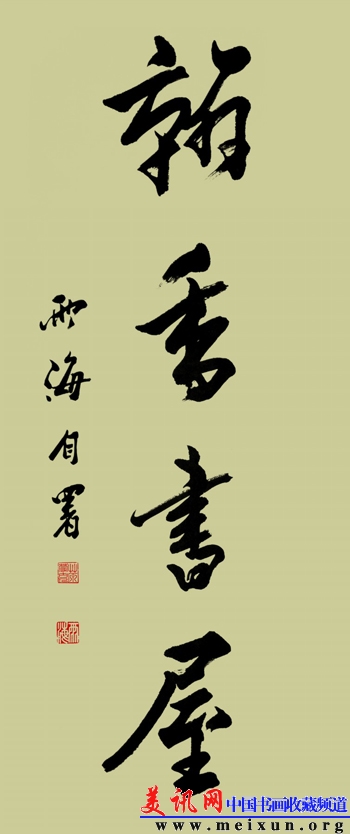 翰香書屋
雨海自署
雨海
美讯网 中国书画收藏频道
www.meixun.org